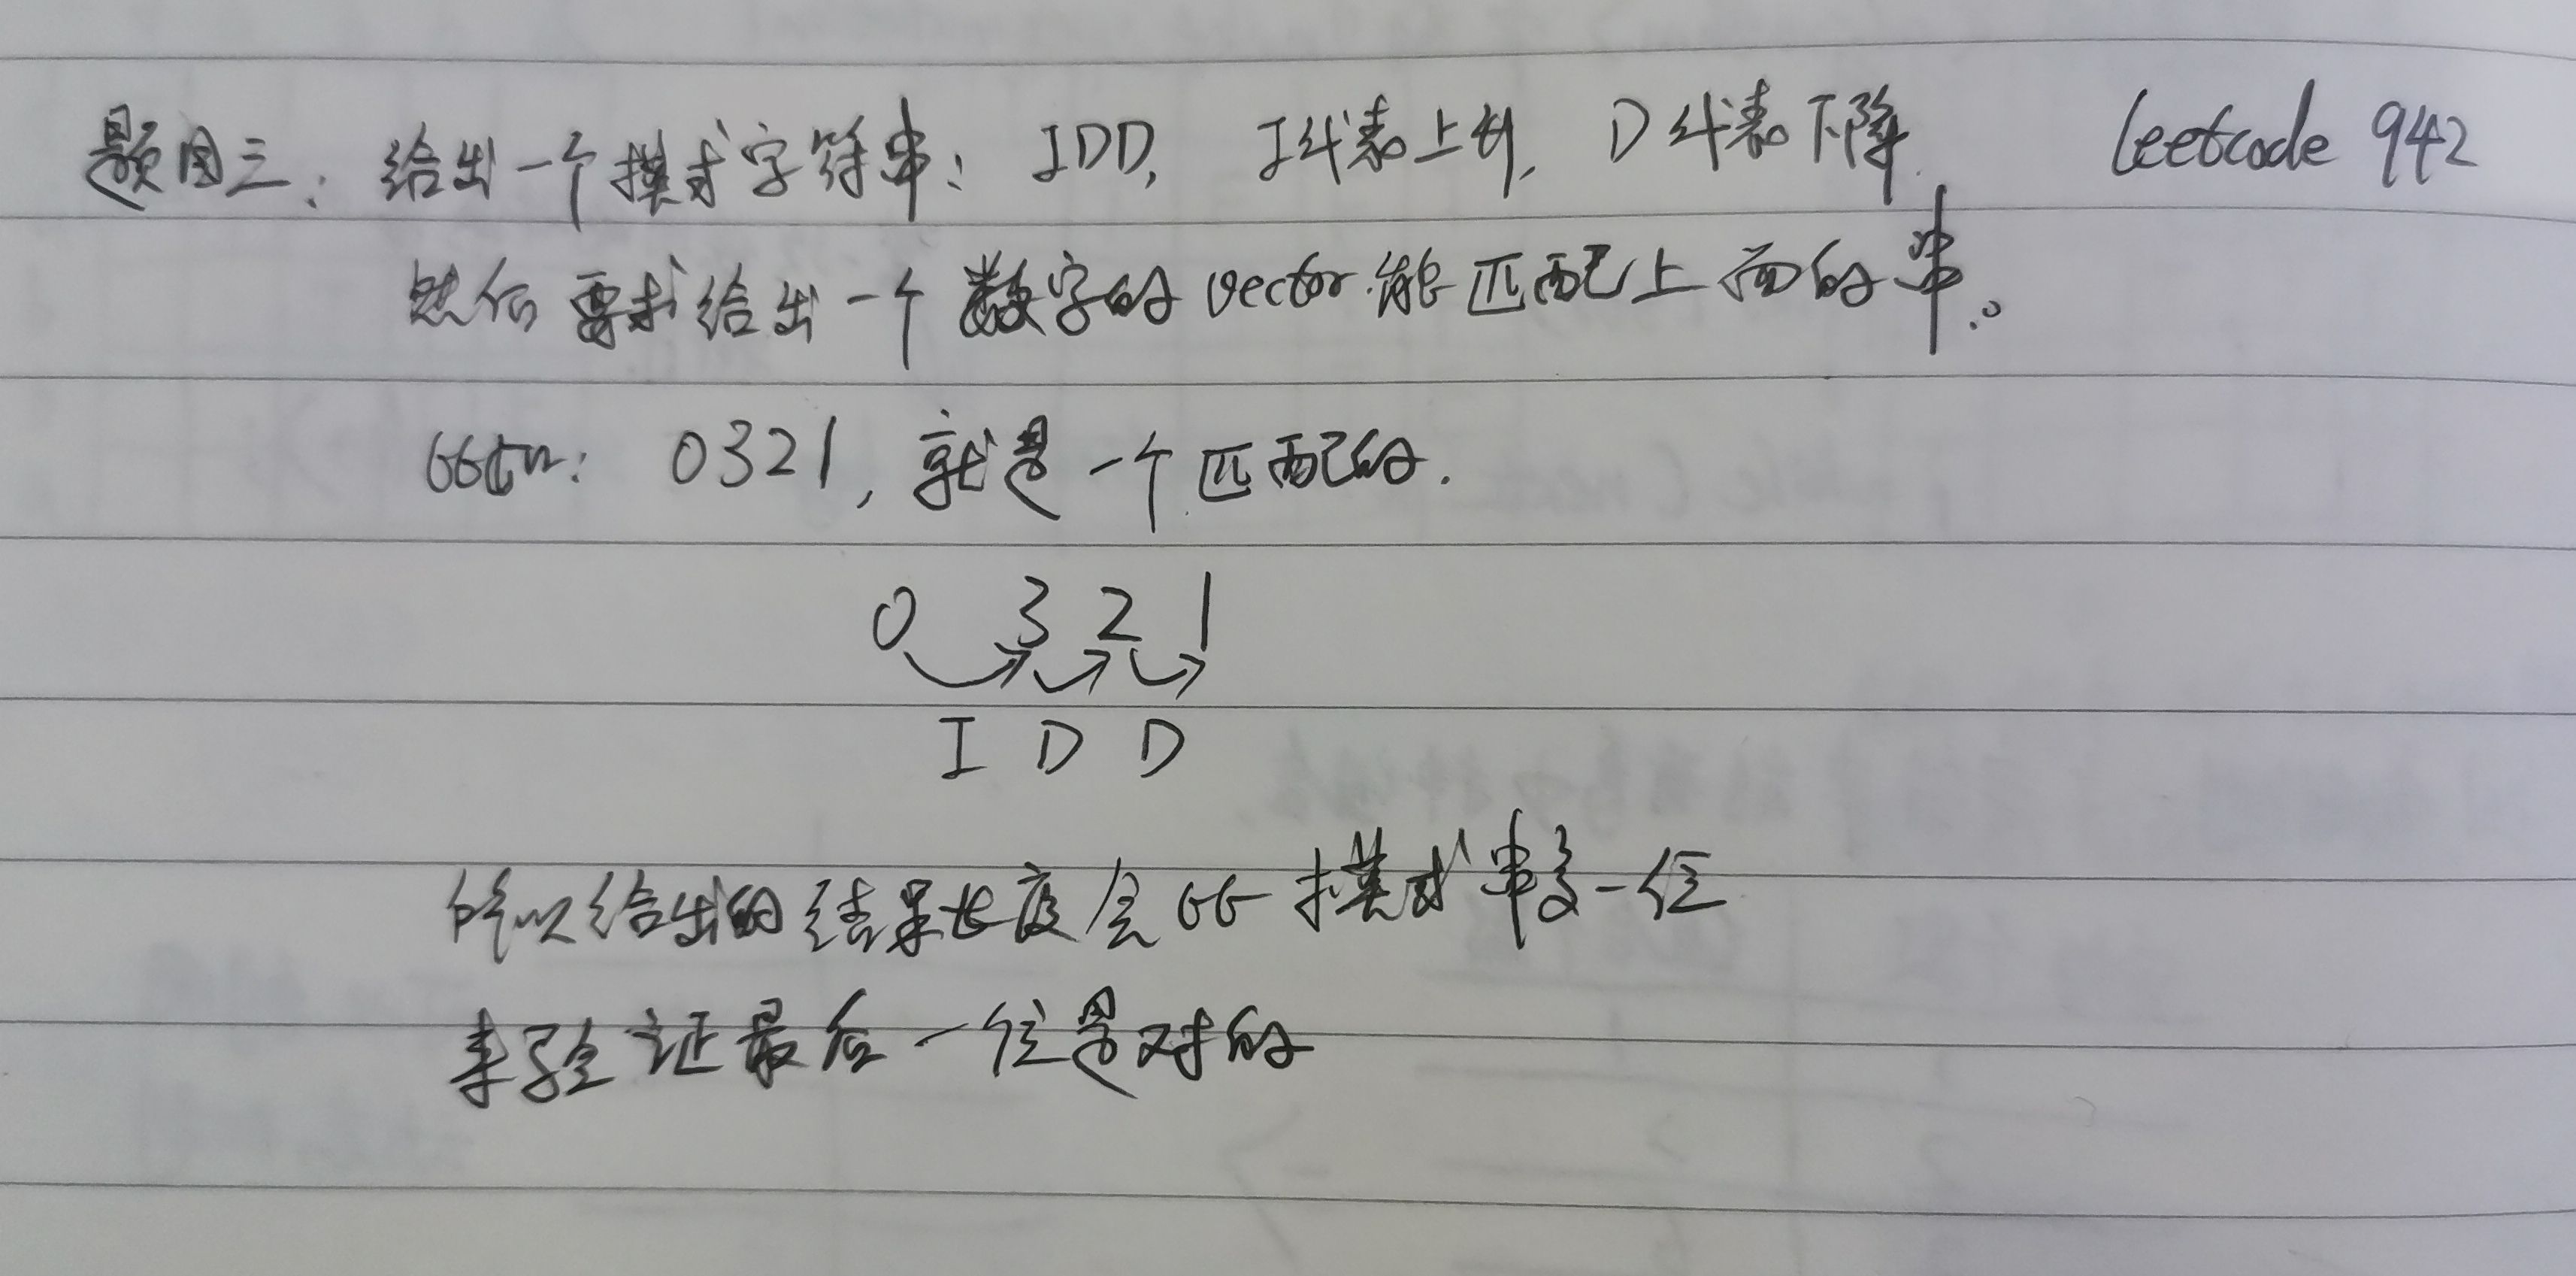 题目三：给出一个模式字符串：IDD, I代表上升, D代表下降. leetcode 942
然后要求给出一个数字的vector能匹配上面的串。
比如：0321, 就是一个匹配的.
0 3 2 1
I D D
所以给出的结果长度会比模式串多一位
来验证最后一位是对的